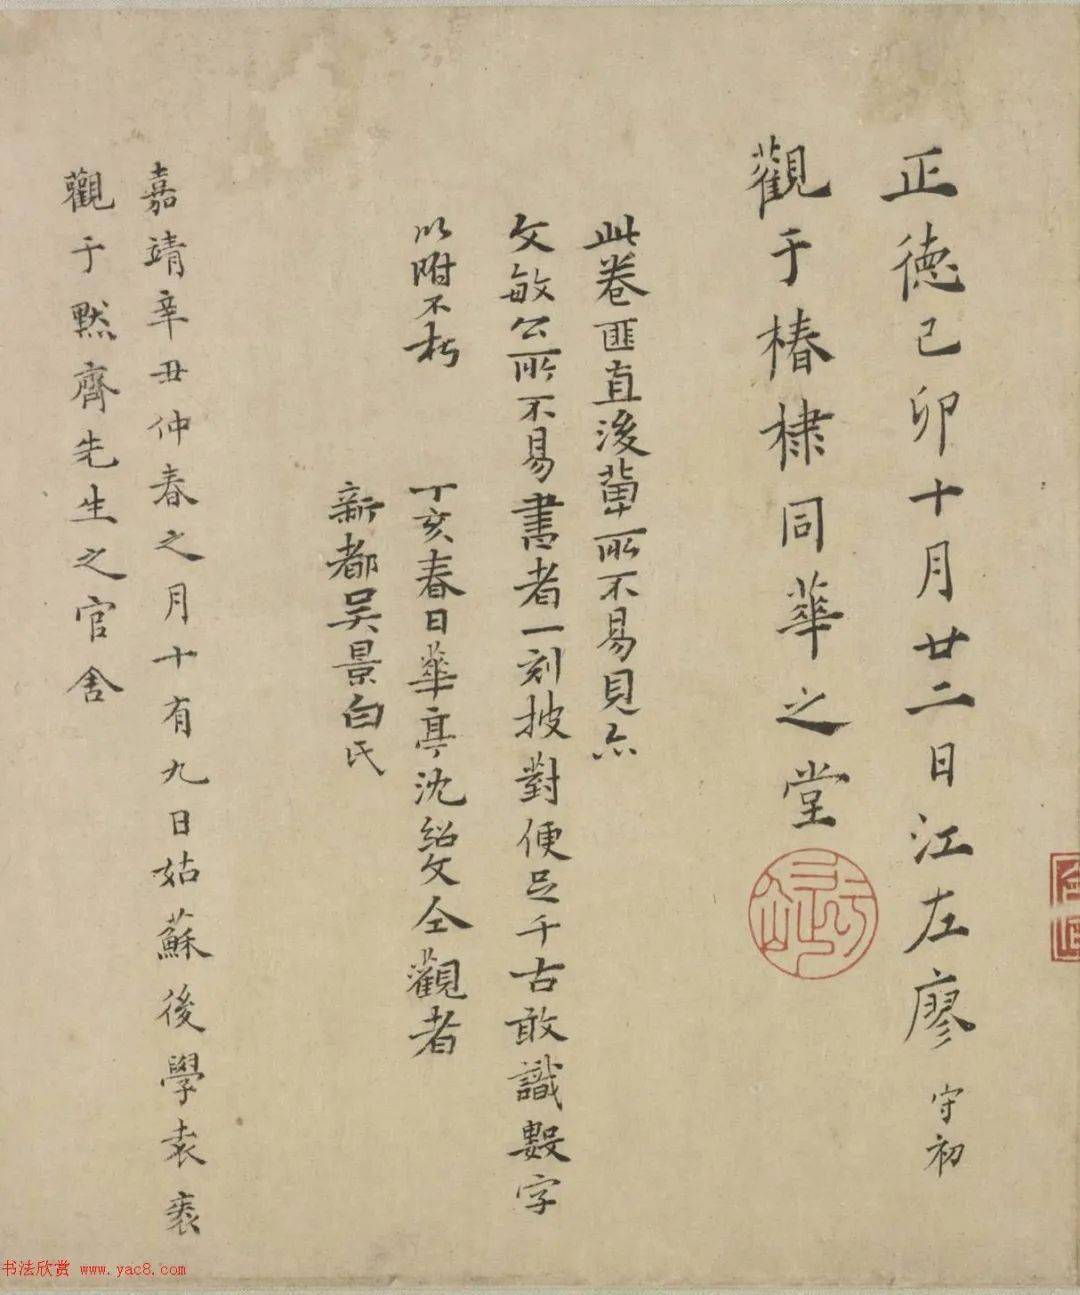 正德己卯十月廿二日江左廖守初
觀于椿棣同華之堂
此卷匪直後輩所不易見亦
文敏公所不易書者一刻披對便足千古敢識數字
以附不朽
丁亥春日華亭沈紹文仝觀者
新都吳景白氏
嘉靖辛丑仲春之月十有九日姑蘇後學袁袠
觀于默齊先生之官舍
书法欣赏 www.yac8.com